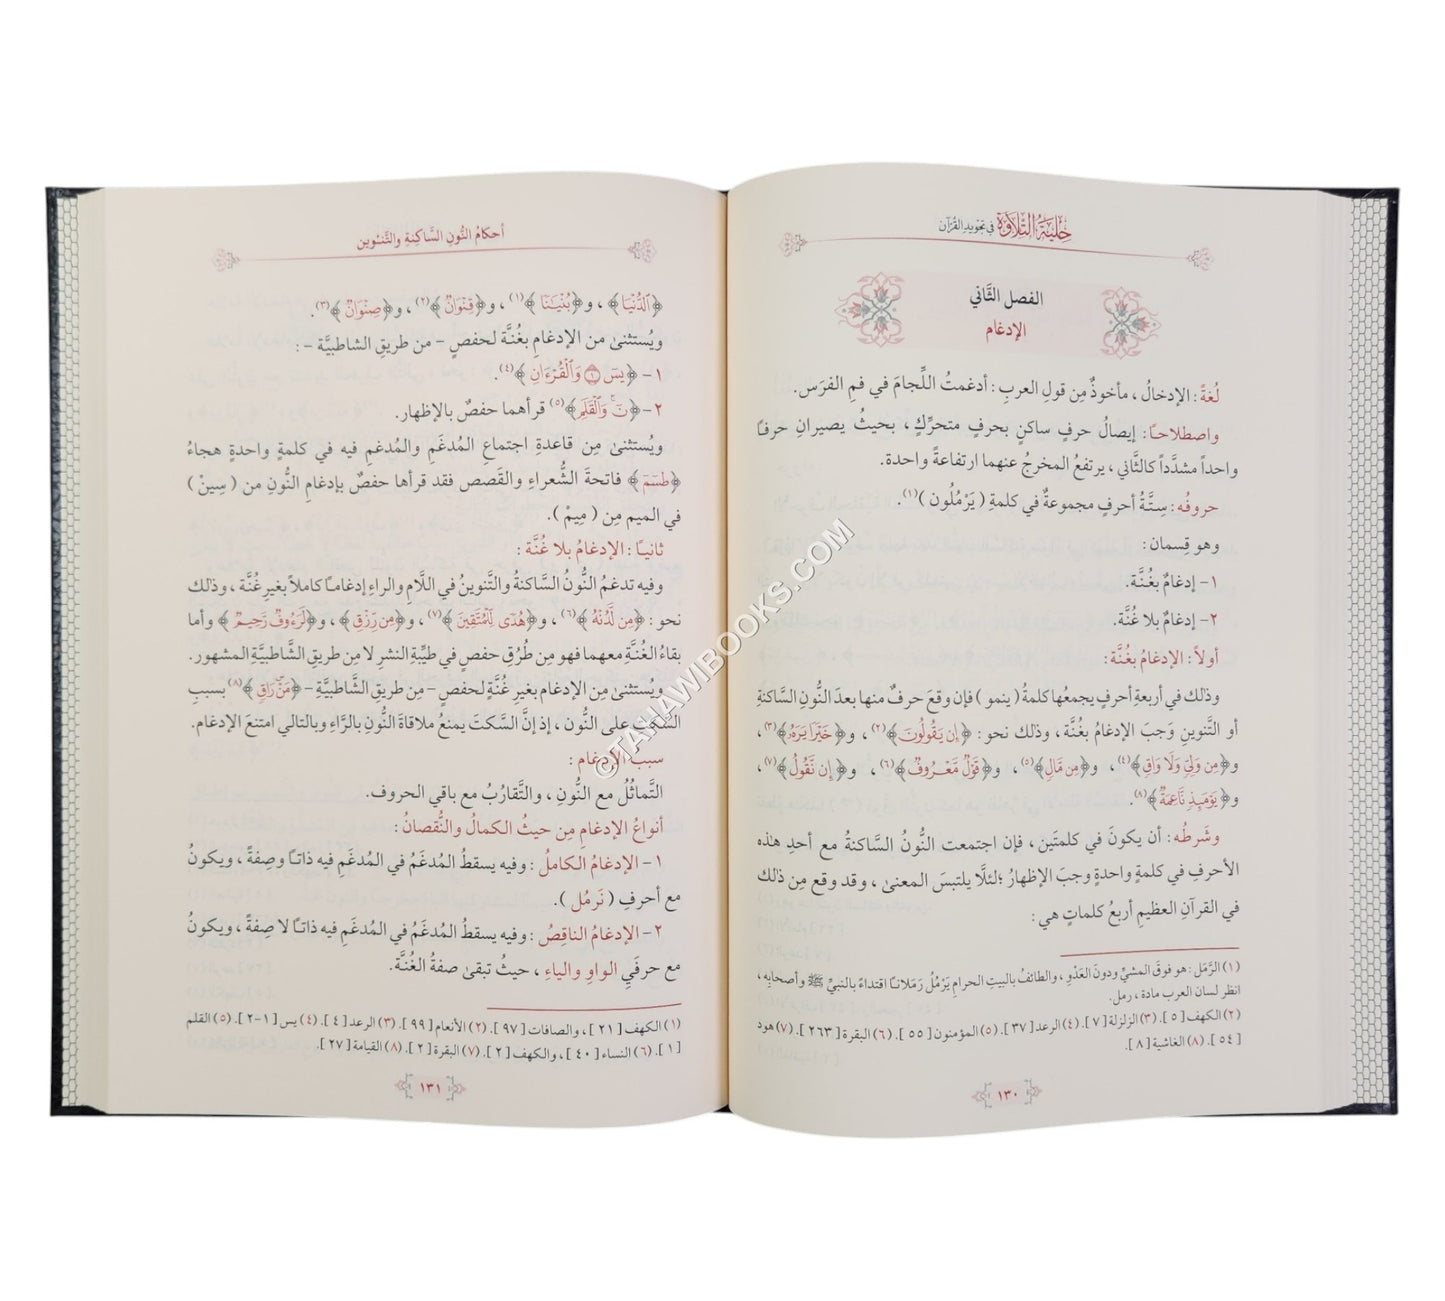 حِليَةُ التِّلَاوَة في تجويد القُرآن
الفصل الثَّاني
الإدغام
لُغةً : الإدخالُ ، مأخوذٌ مِن قولِ العربِ : أدغمتُ اللِّجامَ في فمِ الفرَس.
واصطلاحـًا : إيصالُ حرفٍ ساكنٍ بحرفٍ متحرِّكٍ ، بحيثُ يصيرانِ حرفًا
واحداً مشدَّداً كالثَّاني ، يرتفعُ المخرجُ عنهما ارتفاعةً واحدة.
حروفُه : سِتَّةُ أحرفٍ مجموعةٌ في كلمةِ ( يَرْمُلُون )(١).
وهو قِسمان :
١- إدغامٌ بغُنَّة.
٢- إدغامٌ بلا غُنَّة.
أولاً : الإدغامُ بغُنَّة :
وذلك في أربعةِ أحرفٍ يجمعُها كلمةُ ( ينمو ) فإن وقعَ حرفٌ منها بعدَ النُّونِ السَّاكنةِ
أو التَّنوينِ وَجبَ الإدغامُ بغُنَّة ، وذلك نحو : ﴿ إِن يَقُولُونَ ﴾(٢) ، و﴿ خَيْرًا يَرَهُۥ ﴾(٣) ،
و﴿ مِن وَلِىٍّ وَلَا وَاقٍ ﴾(٤) ، و﴿ مِن مَّالٍ ﴾(٥) ، و﴿ قَوْلٌ مَّعْرُوفٌ ﴾(٦) ، و﴿ إِن نَّقُولُ ﴾(٧) ،
و﴿ يَوْمَئِذٍ نَّاعِمَةٌ ﴾(٨).
وشَرطُه : أن يكونَ في كلمتَين ، فإن اجتمعت النُّونُ السَّاكنةُ مع أحدِ هذه
الأحرفِ في كلمةٍ واحدةٍ وجبَ الإظهارُ ؛لئلَّا يلتبسَ المعنىٰ ، وقد وقع مِن ذلك
في القرآنِ العظيمِ أربعُ كلماتٍ هي :
(١) الرَّمَل : هو فوقَ المشيِ ودونَ العَدْوِ ، والطائفُ بالبيتِ الحرامِ يَرْمُلُ رَمَلانـًا اقتداءً بالنبيِّ ﷺ وأصحابِه ،
انظر لسان العرب مادة ، رمل.
(٢) الكهف [ ٥ ]. (٣) الزلزلة [ ٧ ]. (٤) الرعد [ ٣٧ ]. (٥) المؤمنون [ ٥٥ ]. (٦) البقرة [ ٢٦٣ ]. (٧) هود
[ ٥٤ ]. (٨) الغاشية [ ٨ ].
١٣٠
أحكامُ النُّونِ السَّاكِنةِ والتَّنوين
﴿ ٱلدُّنْيَا ﴾ ، و﴿ بُنْيَـٰنًا ﴾(١) ، و﴿ قِنْوَانٌ ﴾(٢) ، و﴿ صِنْوَانٌ ﴾(٣).
ويُستثنىٰ من الإدغامِ بغُنَّة لحفصٍ - من طريقِ الشاطبيَّة - :
١- ﴿ يسٓ ١ وَٱلْقُرْءَانِ ﴾(٤).
٢- ﴿ نٓ ۚ وَٱلْقَلَمِ ﴾(٥) قرأهما حفصٌ بالإظهار.
ويُستثنىٰ مِن قاعدةِ اجتماعِ المُدغَمِ والمُدغم فيه في كلمةٍ واحدةٍ هجاءُ
﴿ طسٓمٓ ﴾ فاتحةَ الشُّعراءِ والقَصص فقد قرأها حفصٌ بإدغامِ النُّونِ من ( سِينْ )
في الميم مِن ( مِيمْ ).
ثانيـًا : الإدغامُ بلا غُنَّة :
وفيه تدغمُ النُّونُ السَّاكنةُ والتَّنوينُ في اللَّامِ والراءِ إدغامـًا كاملاً بغيرِ غُنَّة ، وذلك
نحو : ﴿ مِن لَّدُنْهُ ﴾(٦) ، و﴿ هُدًى لِّلْمُتَّقِينَ ﴾(٧) ، و﴿ مِن رِّزْقٍ ﴾ ، و﴿ لَرَءُوفٌ رَّحِيمٌ ﴾ وأما
بقاءُ الغُنَّةِ معهما فهو مِن طُرُقِ حفصٍ في طيِّبةِ النشرِ لا مِن طريقِ الشَّاطبيَّةِ المشهور.
ويُستثنىٰ مِن الإدغامِ بغيرِ غُنَّةٍ لحفصٍ - مِن طريقِ الشَّاطبيَّةِ - ﴿ مَنْ ۜ رَاقٍ ﴾(٨) بسببِ
السَّكتِ على النُّونِ ، إذ إنَّ السَّكتَ يمنعُ ملاقاةَ النُّونِ بالرَّاءِ وبالتالي امتنعَ الإدغام.
سببُ الإدغام :
التَّماثُلُ مع النُّونِ ، والتَّقارُبُ مع باقي الحروف.
أنواعُ الإدغامِ مِن حيثُ الكمالُ والنُّقصانُ :
١- الإدغامُ الكاملُ : وفيه يسقطُ المُدغَمُ في المُدغَمِ فيه ذاتـًا وصِفةً ، ويكونُ
مع أحرفِ ( نَرمُل ).
٢- الإدغامُ الناقِصُ : وفيه يسقطُ المُدغَمُ في المُدغَمِ فيه ذاتـًا لا صِفةً ، ويكونُ
مع حرفَيِ الواوِ والياءِ ، حيثُ تبقىٰ صفةُ الغُنَّة.
(١) الكهف [ ٢١ ] ، والصافات [ ٩٧ ]. (٢) الأنعام [ ٩٩ ]. (٣) الرعد [ ٤ ]. (٤) يس [ ١-٢ ]. (٥) القلم
[ ١ ]. (٦) النساء [ ٤٠ ] ، والكهف [ ٢ ]. (٧) البقرة [ ٢ ]. (٨) القيامة [ ٢٧ ].
١٣١
©TAHAWIBOOKS.COM